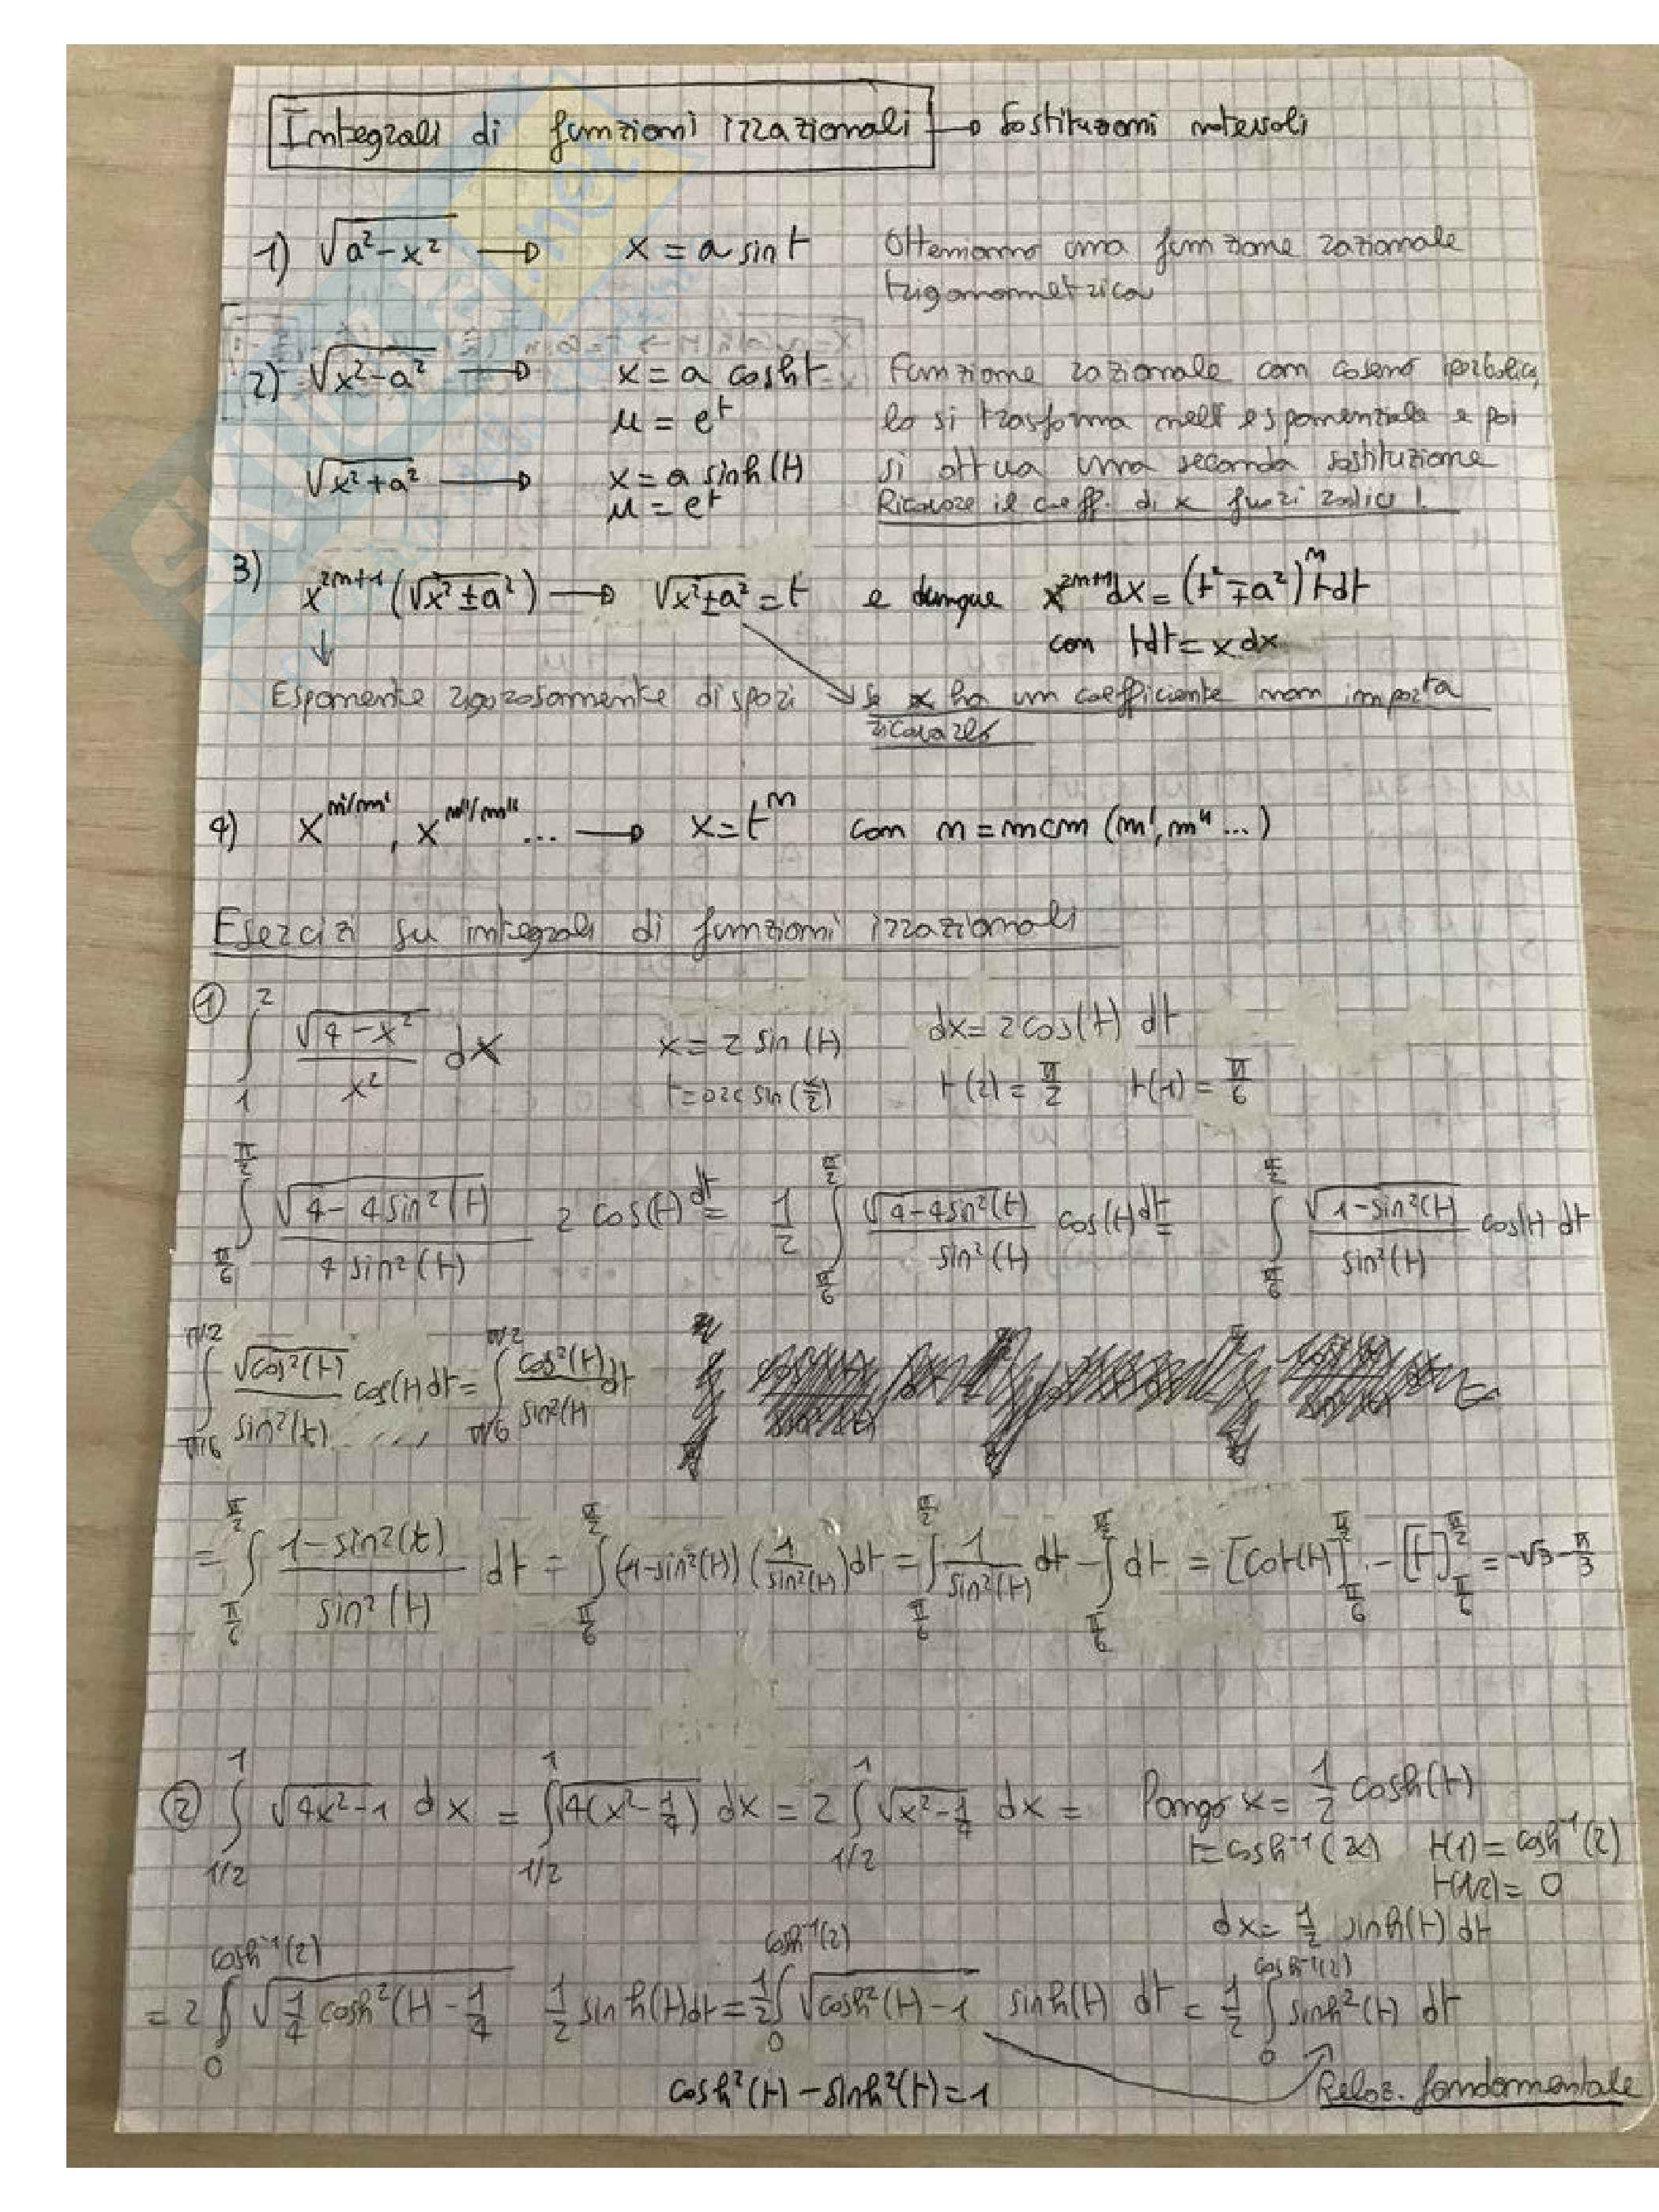 Integrali di funzioni irrazionali → Sostituzioni notevoli
1) √(a²-x²) → x = a sin t Otteniamo una funzione razionale
trigonometrica
2) √(x²-a²) → x = a cosh t Funzione razionale con coseno iperbolico,
u = e^t lo si trasforma nell'esponenziale e poi
√(x²+a²) → x = a sinh(t) si attua una seconda sostituzione
u = e^t Ricavare il coeff. di x fuori radice!
3) x^(2n+1) (√(x²±a²)) → √(x²±a²) = t e dunque x^(2n+1) dx = (t²∓a²)^n t dt
con t dt = x dx
Esponente rigorosamente dispari Se x ha un coefficiente non importa
ricavarlo
4) x^(m'/n'), x^(m''/n'') ... → x = t^n con n = mcm (n', n'' ...)
Esercizi su integrali di funzioni irrazionali
① ∫_1^2 √(4-x²)/x² dx x = 2 sin(t) dx = 2 cos(t) dt
t = arcsin(x/2) t(2) = π/2 t(1) = π/6
∫_{π/6}^{π/2} √(4-4sin²(t))/(4sin²(t)) 2 cos(t) dt = 1/2 ∫_{π/6}^{π/2} √(4-4sin²(t))/sin²(t) cos(t) dt = ∫_{π/6}^{π/2} √(1-sin²(t))/sin²(t) cos(t) dt
∫_{π/6}^{π/2} √(cos²(t))/sin²(t) cos(t) dt = ∫_{π/6}^{π/2} cos²(t)/sin²(t) dt
= ∫_{π/6}^{π/2} (1-sin²(t))/sin²(t) dt = ∫_{π/6}^{π/2} (1-sin²(t)) (1/sin²(t)) dt = ∫_{π/6}^{π/2} 1/sin²(t) dt - ∫_{π/6}^{π/2} dt = [cot(t)]_{π/6}^{π/2} - [t]_{π/6}^{π/2} = -√3 - π/3
② ∫_{1/2}^1 √(4x²-1) dx = ∫_{1/2}^1 √(4(x²-1/4)) dx = 2 ∫_{1/2}^1 √(x²-1/4) dx = Pongo x = 1/2 cosh(t)
t = cosh⁻¹(2x) t(1) = cosh⁻¹(2)
t(1/2) = 0
dx = 1/2 sinh(t) dt
= 2 ∫_0^{cosh⁻¹(2)} √(1/4 cosh²(t) - 1/4) 1/2 sinh(t) dt = 1/2 ∫_0^{cosh⁻¹(2)} √(cosh²(t)-1) sinh(t) dt = 1/2 ∫_0^{cosh⁻¹(2)} sinh²(t) dt
cosh²(t) - sinh²(t) = 1 Relaz. fondamentale